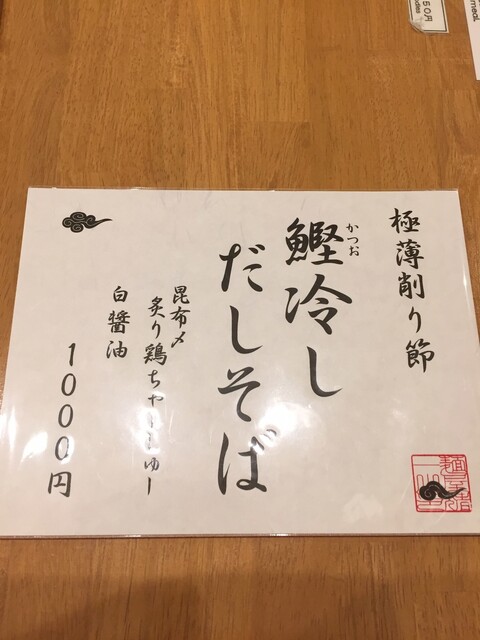 極薄削り節
鰹冷し
かつお
だしそば
昆布〆
炙り鶏ちゃーしゅー
白醤油
1000円
50円